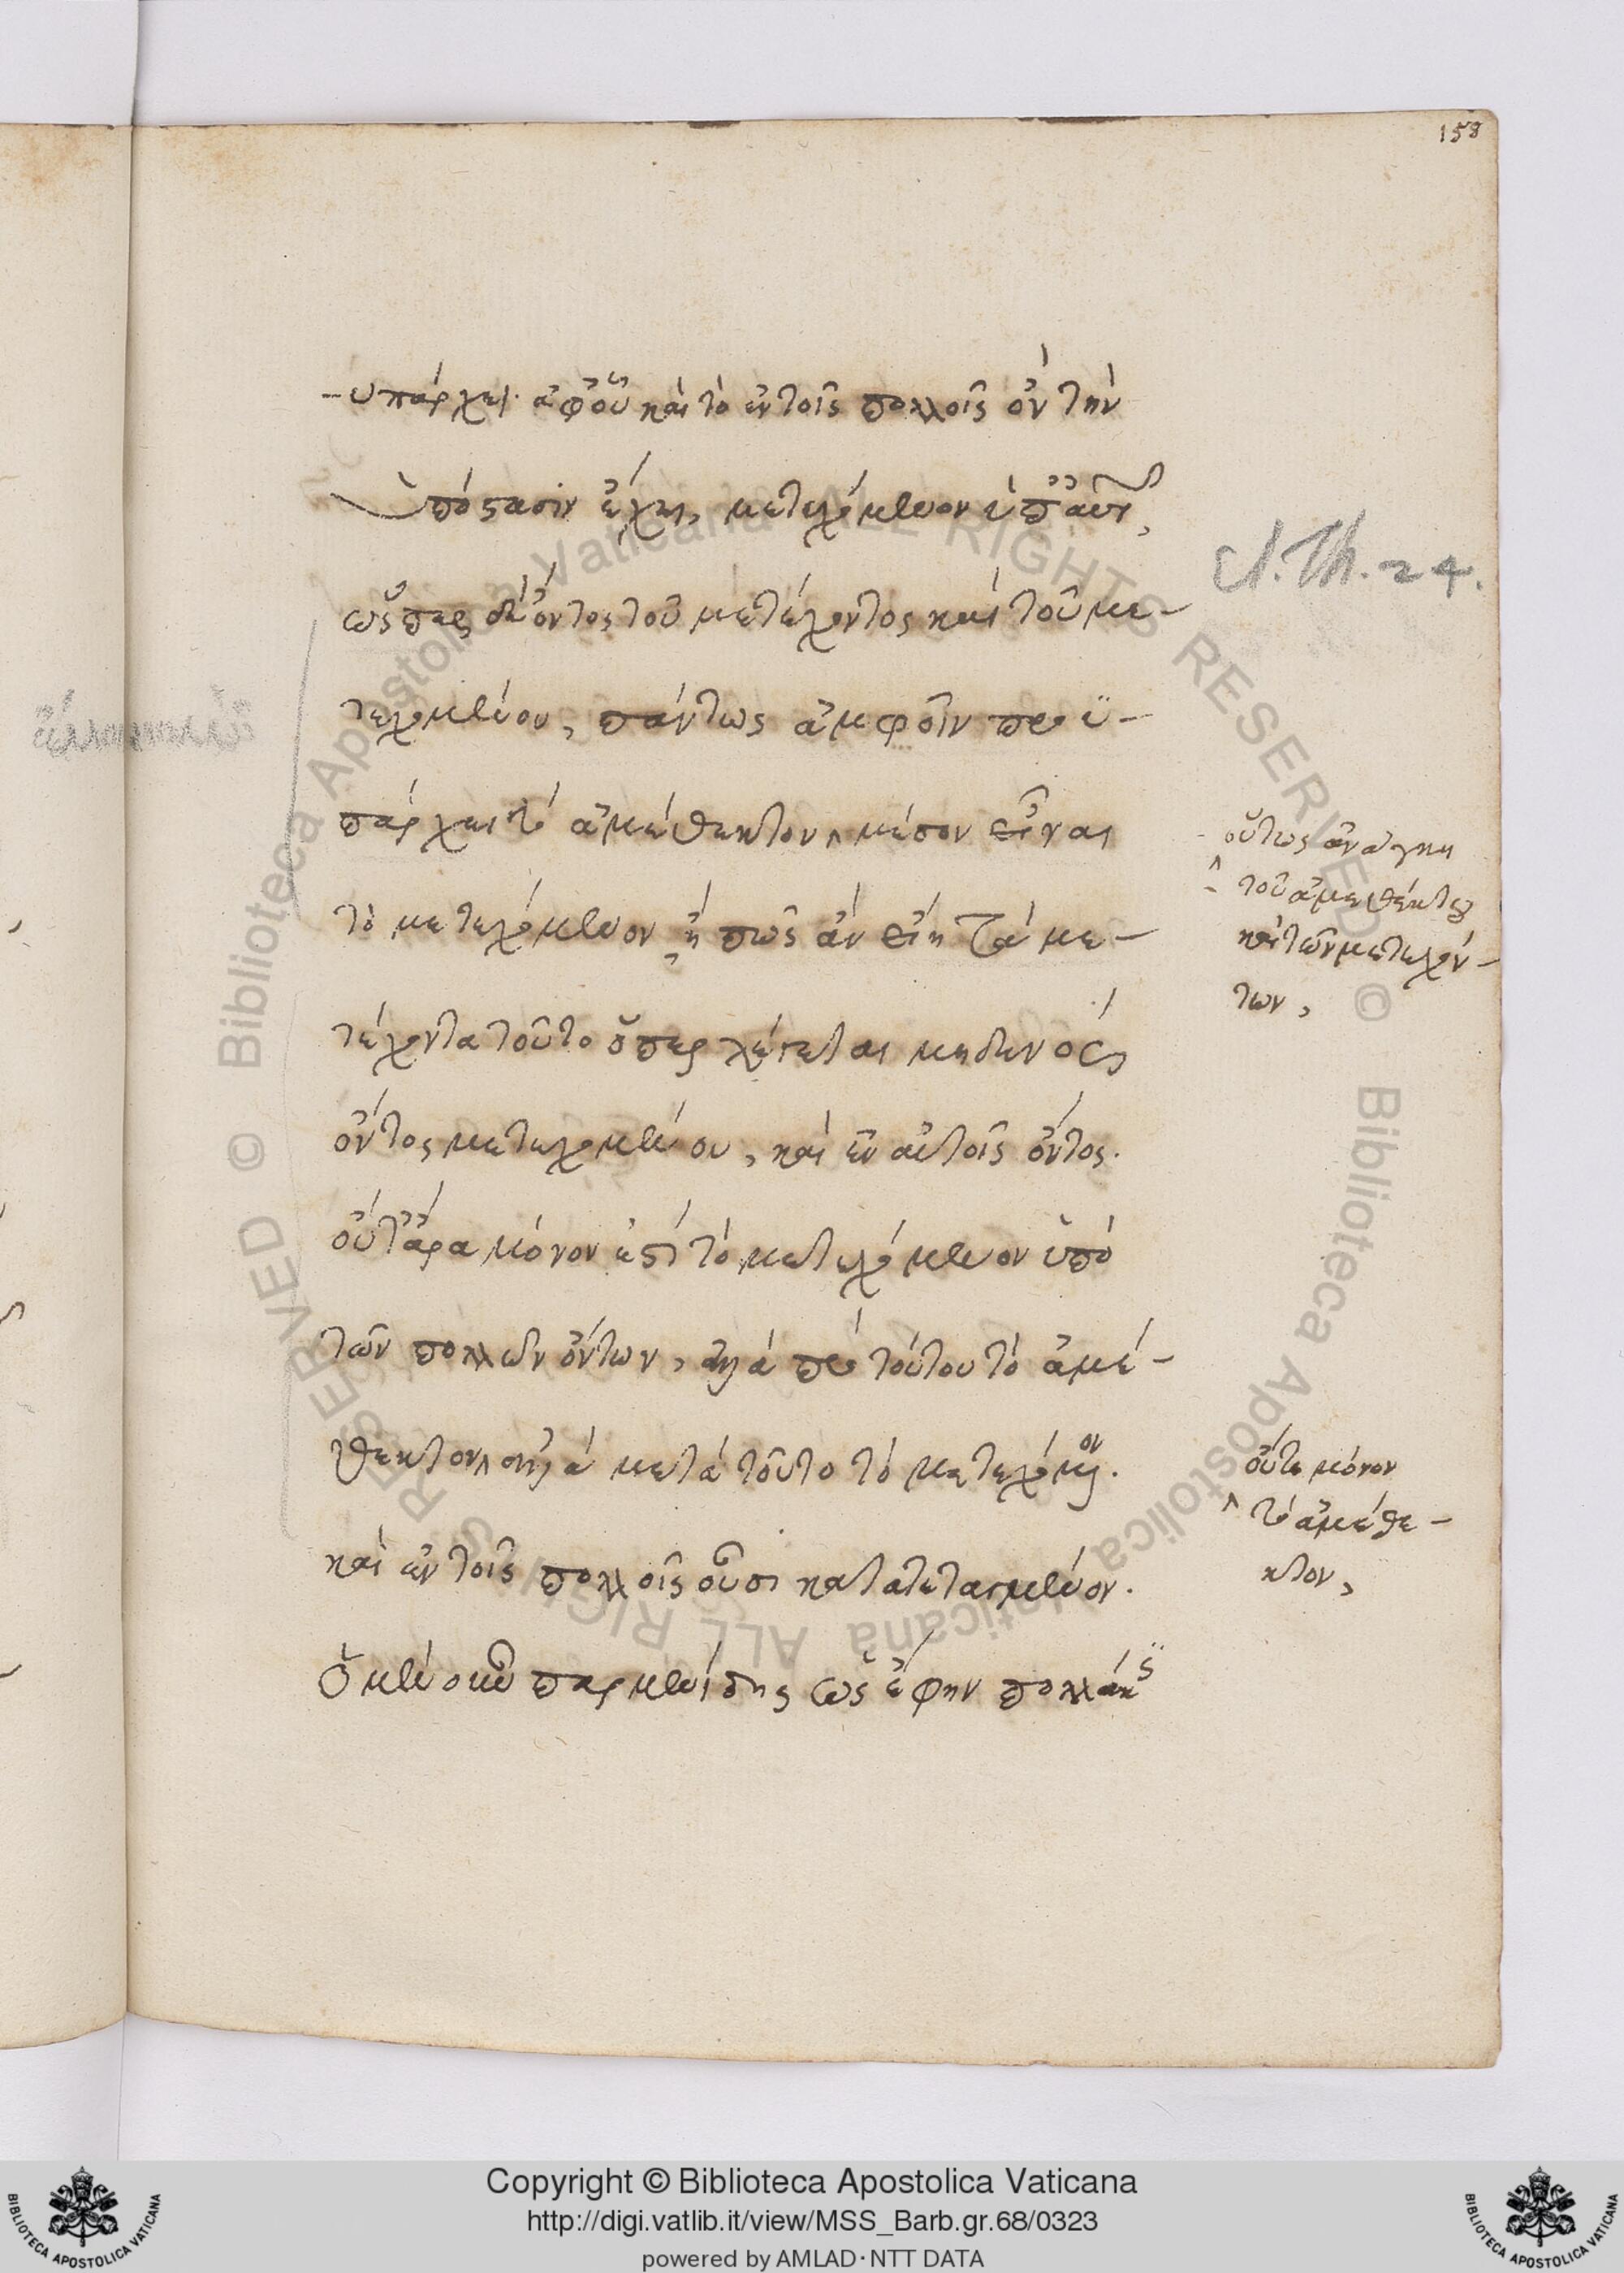 158
-υπάρχει. ἀφ᾽ οὗ καὶ τὸ ἐν τοῖς πολλοῖς ὂν τὴν
ὑπόστασιν ἔχει, μετεχόμενον ὑπ᾽ αὐτῶν,
ὥσπερ δὲ ὄντος τοῦ μετέχοντος καὶ τοῦ με-
τεχομένου, πάντως ἀμφοῖν προϋ-
πάρχει τὸ ἀμέθεκτον ‸ μέσον εἶναι
τὸ μετεχόμενον ἢ πῶς ἂν εἴη τὰ με-
τέχοντα τοῦτο ὅπερ λέγεται μηδενὸς
ὄντος μετεχομένου, καὶ ἐν αὐτοῖς ὄντος.
οὔτ᾽ ἄρα μόνον ἐστὶ τὸ μετεχόμενον ὑπὸ
τῶν πολλῶν ὄντων, ἀλλὰ πρὸ τούτου τὸ ἀμέ-
θεκτον ‸ ἀλλὰ μετὰ τοῦτο τὸ μετεχόμενον.
καὶ ἐν τοῖς πολλοῖς οὖσι κατατεταγμένον.
Ὁ μὲν οὖν παρμενίδης ὡς ἔφην πολλάκις
οὕτως ἀνάγκη
‸ τοῦ ἀμεθέκτου
καὶ τῶν μετεχόν-
των,
οὔτε μόνον
‸ τὸ ἀμέθε-
κτον,
Copyright © Biblioteca Apostolica Vaticana
http://digi.vatlib.it/view/MSS_Barb.gr.68/0323
powered by AMLAD·NTT DATA
BIBLIOTECA APOSTOLICA VATICANA
BIBLIOTECA APOSTOLICA VATICANA
© Biblioteca Apostolica Vaticana ALL RIGHTS RESERVED
© Biblioteca Apostolica Vaticana ALL RIGHTS RESERVED